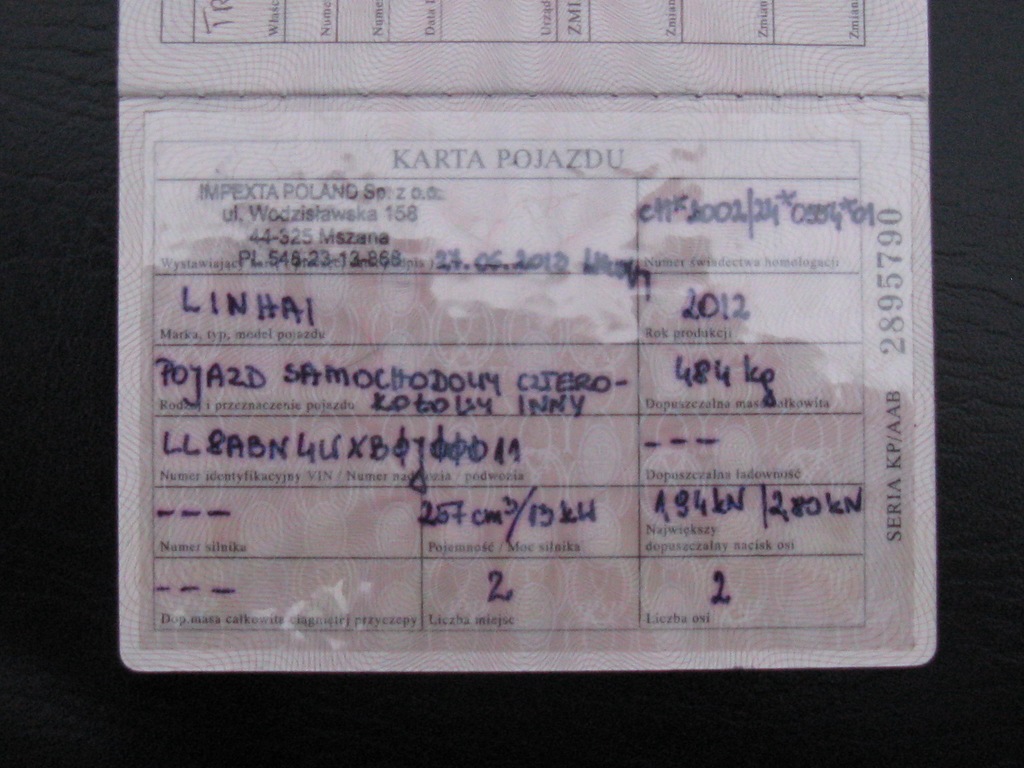 Zmian
Zmian
Zmian
ZMI
Urząd
Data
Nume
Nume
Właśc
TR
KARTA POJAZDU
IMPEXTA POLAND Sp. z o.o.
ul. Wodzisławska 158
44-325 Mszana
PL 548-23-13-868
Wystawiający
27.06.2012
e11*2002/24*0554*01
Numer świadectwa homologacji
LINHAI
Marka, typ, model pojazdu
2012
Rok produkcji
POJAZD SAMOCHODOWY CZTERO-
KOŁOWY INNY
Rodzaj i przeznaczenie pojazdu
484 kg
Dopuszczalna masa całkowita
Numer identyfikacyjny VIN / Numer nadwozia / podwozia
---
Dopuszczalna ładowność
---
Numer silnika
257 cm³/13 kW
Pojemność / Moc silnika
1,94 kN / 2,89 kN
Największy
dopuszczalny nacisk osi
---
Dop. masa całkowita ciągniętej przyczepy
2
Liczba miejsc
2
Liczba osi
SERIA KP/AAB 2895790